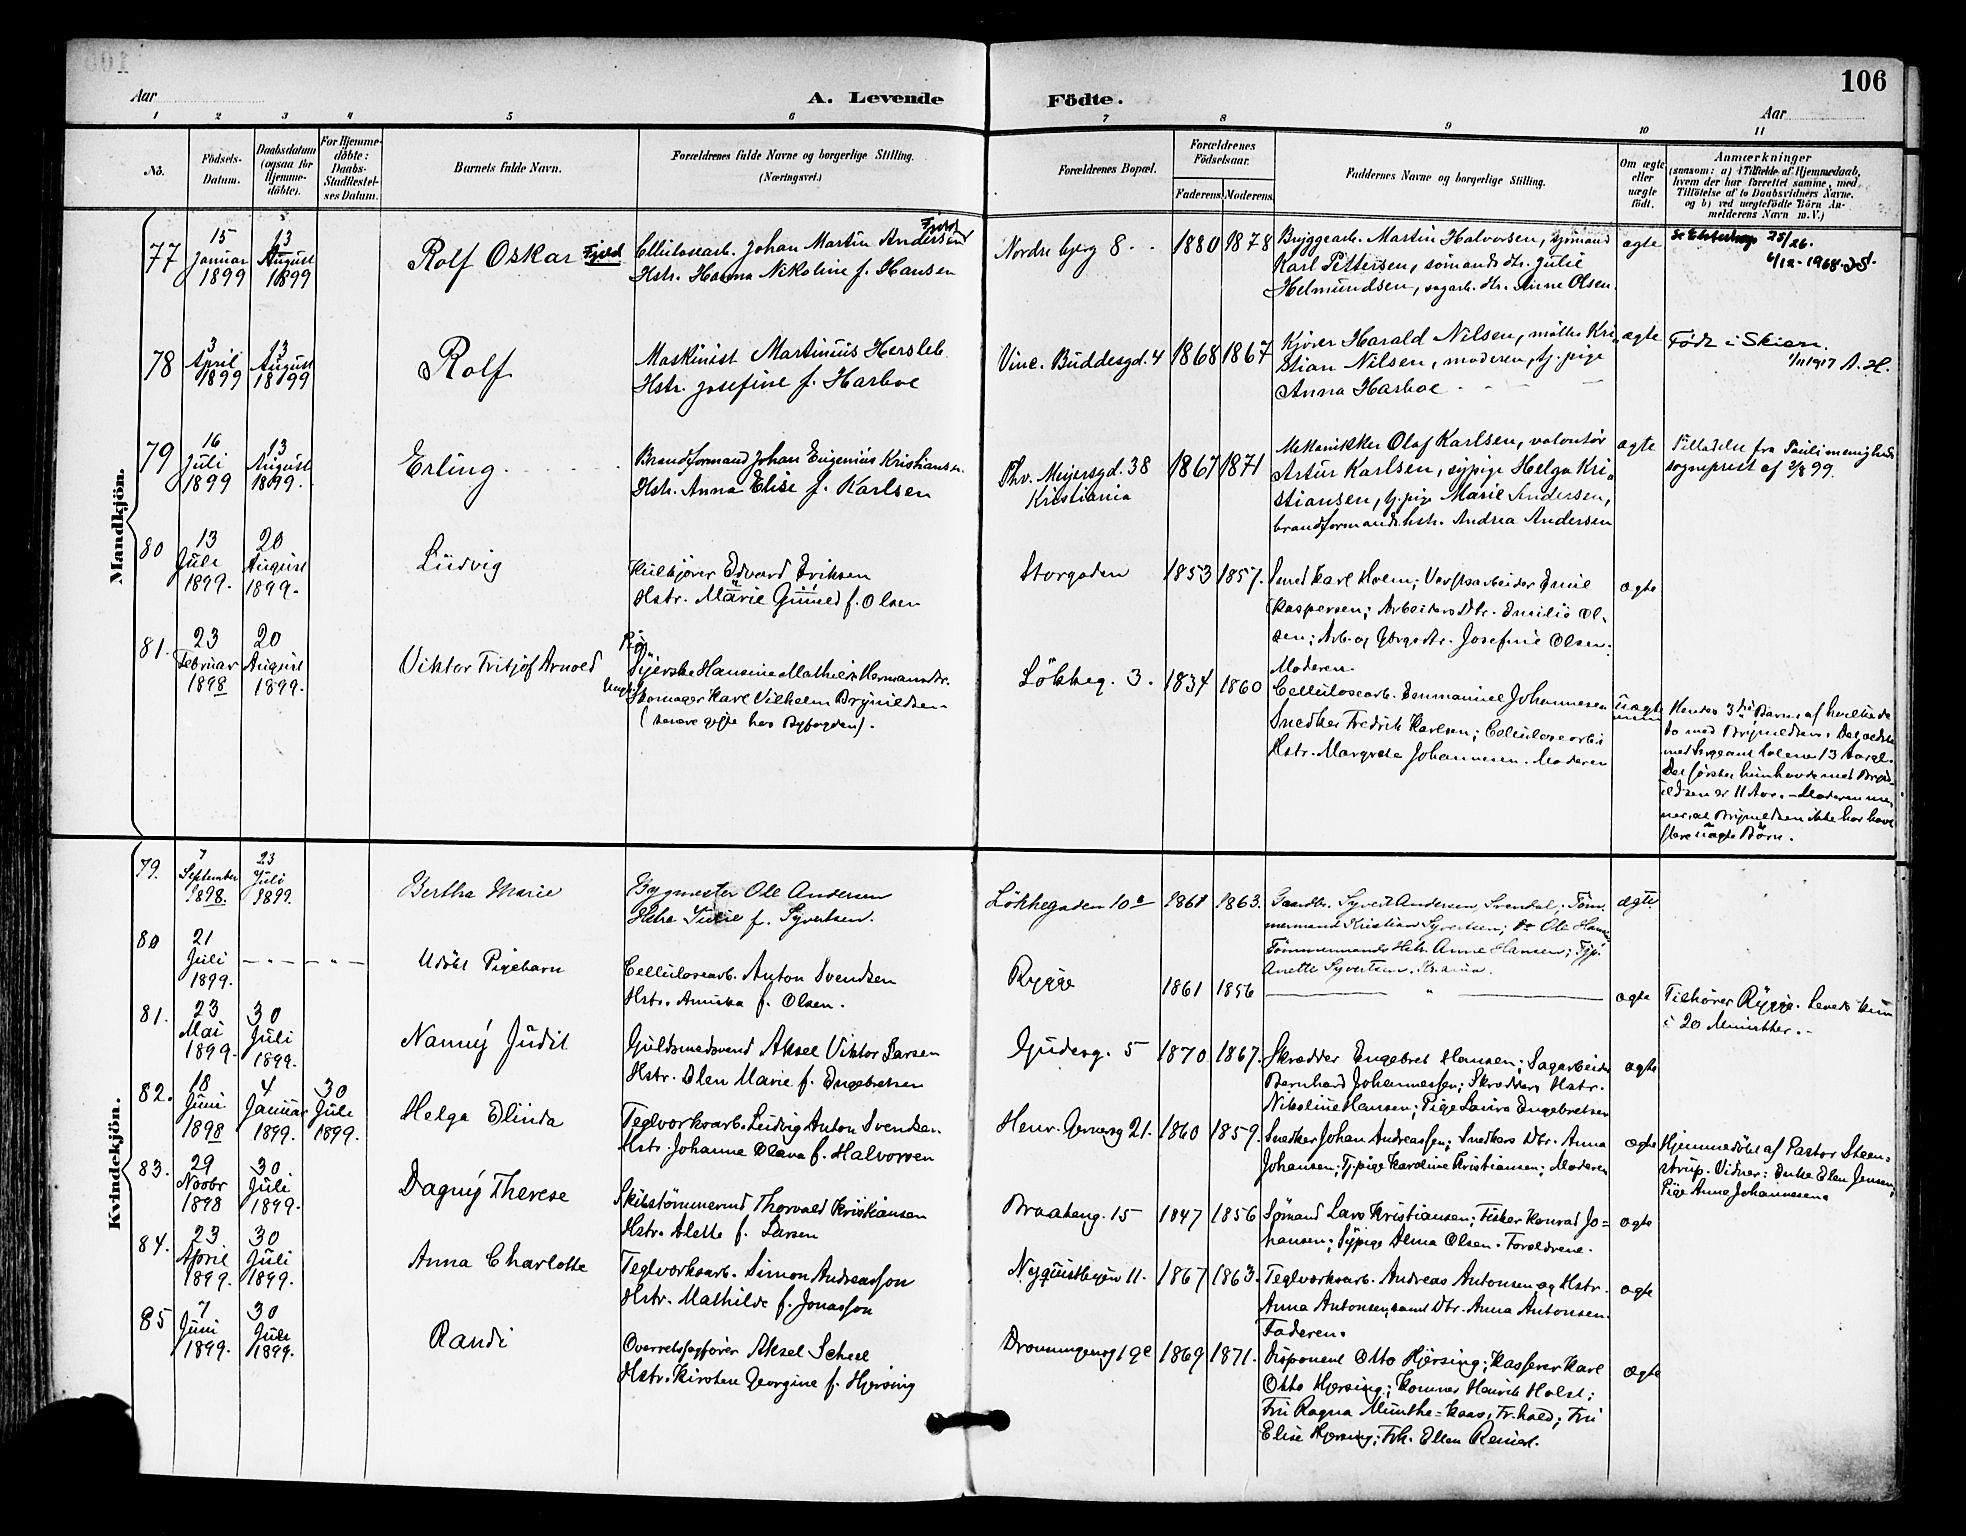 106
Aar
A. Levende Födte.
Aar
1 2 3 4 5 6 7 8 9 10 11
No.
Födsels-
Datum.
Daabsdatum
(ogsaa for
Hjemme-
døbte).
For Hjemme-
döbte:
Daabs-
Stadfæstel-
ses Datum.
Barnets fulde Navn.
Forældrenes fulde Navne og borgerlige Stilling.
(Næringsvei.)
Forældrenes Bopæl.
Forældrenes
Födselsaar.
Faderens Moderens
Faddernes Navne og borgerlige Stilling.
Om ægte
eller
uægte
födt.
Anmærkninger
(saasom: a) i Tilfælde af Hjemmedaab,
hvem der har forrettet samme, med
Tilföielse af to Daabsvidners Navne,
og b) ved uægtefödte Börn An-
melderens Navn m.V.)
Mandkjön.
77
15
Januar
1899
13
August
1899
Rolf Oskar Fjeld
Fjeld
Cellulosearb. Johan Martin Andersen
Hstr. Hanna Nikoline f. Hansen
Nordre bjerg 8
1880 1878
Bryggearb. Martin Halvorsen, sjömand
Karl Pettersen, sömands dtr. Julie
Helmundsen, sagarb. Hr. Anne Olsen.
ægte
25/26.
6/12-1968.
78
3
April
1899
13
August
1899
Rolf
Maskinist Martinius Hersleb
Hstr. Josefine f. Harboe
Vinc. Buddesgd. 4
1868 1867
Kjörer Harald Nilsen, möller Kri-
stian Nilsen, moderen, tj. pige
Anna Harboe
ægte
Födt i Skien.
1/11 1917 A. H.
79
16
Juli
1899
13
August
1899.
Erling
Brandformand Johan Eugenius Kristiansen
Hstr. Anna Elise f. Karlsen
Thv. Meyersgd. 38
Kristiania
1867 1871
Mekanikker Olaf Karlsen, volontør
Artur Karlsen, sypige Helga Kri-
stiansen, tj. pige Marie Andersen,
brandformands hstr. Andrea Andersen
ægte
Tilladelse fra Paulimenigheds
sogneprest af 2/8 99.
80
13
Juli
1899.
20
August
1899.
Ludvig
Kulkjører Edvard Eriksen
Hstr. Marie Gunild f. Olsen
Storgaden
1853 1857.
Smed Karl Holm; Verftsarbeider Emil
Kaspersen; Arbeiders Dtr. Emilie Ol-
sen; Arb. og Josefine Olsen.
Moderen.
ægte
81.
23
Februar
1898
20
August
1899.
Viktor Fritjof Arnold
Pige
Syerske Hansine Mathilde Hermansdtr.
Ungk.
Skomager Karl Vilhelm Brynildsen
(senere gifte hos Byfogden).
Lökkeg. 3.
1834 1860
Cellulosearb. Emmanuel Johannesen
Snedker Fredrik Karlsen; Cellulosearb.
Hstr. Margrete Johannesen. Moderen
uægte
Hendes 3die Barn, af hvilke de
to med Brynildsen. Det ældste
med Sergeant Holene 13 Aar gl.
Det første hun havde med Bryn-
ildsen er 11 Aar. - Moderen me-
ner, at Brynildsen ikke har havt
flere uægte Börn.
Kvindekjön.
79.
7
September
1898.
23
Juli
1899.
Bertha Marie
Bygmester Ole Andersen
Hstr. Julie f. Syvertsen.
Lökkegaden 10a
1861 1863.
Gaardbr. Syvert Andersen, Svendal; Töm-
mermand Kristian Syvertsen; do Ole Hansen
Tømmermands Hstr. Anne Hansen; Tjp.
Anette Syvertsen. Krania.
ægte.
80
21
Juli
1899.
— " — " —
Udöbt Pigebarn
Cellulosearb. Anton Svendsen
Hstr. Annika f. Olsen.
Rygge
1861 1856
— " —
ægte
Tilhører Rygge. Levede kun
i 20 Minutter.
81.
23
Mai
1899.
30
Juli
1899.
Nanny Judit
Guldsmedsvend Aksel Viktor Larsen
Hstr. Elen Marie f. Engebretsen
Gudesg. 5
1870 1867.
Skrædder Engebret Hansen; Sagarbeider
Bernhard Johannessen; Skrædders Hstr.
Nikoline Hansen; Pige Laura Engebretsen
ægte
82.
18
Juni
1898
4
Januar
1899.
30
Juli
1899.
Helga Elinda
Teglverksarb. Ludvig Anton Svendsen
Hstr. Johanne Olava f. Halvorsen
Henr. Gernersg 21.
1860 1859.
Snedker Johan Andreassen; Snedkers Dtr. Anna
Johansen; Tj.pige Karoline Kristiansen; Moderen
ægte
Hjemmedöbt af Pastor Steen-
strup. Vidner: Enke Elen Jensen,
Pige Anna Johannesen.
83.
29
Novbr
1898
30
Juli
1899.
Dagny Therese
Skibstømmermd Thorvald Kristiansen
Hstr. Alette f. Larsen
Braateng. 15
1847 1856
Sømand Lars Kristiansen; Fisker Konrad Jo-
hansen; Sypige Alma Olsen. Forældrene.
ægte
84.
23
April
1899.
30
Juli
1899.
Anna Charlotte
Teglverksarb. Simon Andreasson
Hstr. Mathilde f. Jonasson
Nyquistbyen 11.
1867 1863.
Teglverksarb. Andreas Antonsen og Hstr.
Anna Antonsen samt Dtr. Anna Antonsen.
Faderen.
ægte
85
7
Juni
1899.
30
Juli
1899.
Randi
Overretssagfører Aksel Scheel
Hstr. Kirsten Georgine f. Hjersing
Dronningensg 19c
1869 1871.
Disponent Otto Hjersing; Kasserer Karl
Otto Hjersing; Henrik Holst;
Fru Ragna Munthe-Kaas, Fr.hald; Fru
Elise Hjersing; Frk. Ellen
ægte